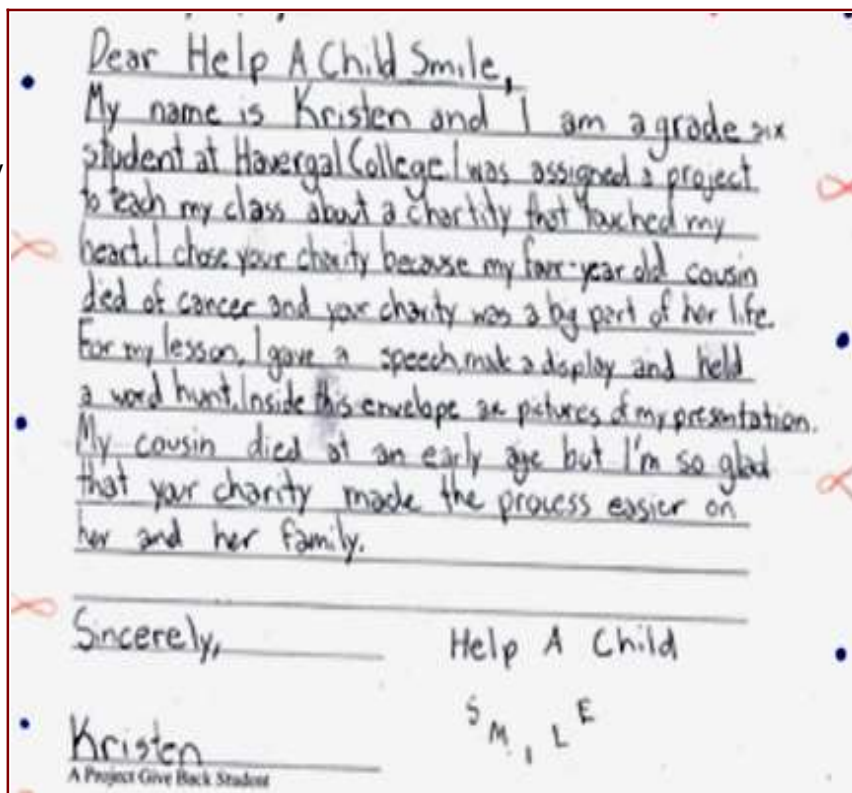 Dear Help A Child Smile,
My name is Kristen and I am a grade six
student at Havergal College. I was assigned a project
to teach my class about a chartity that touched my
heart. I chose your charity because my four-year old cousin
died of cancer and your charity was a big part of her life.
For my lesson, I gave a speech, made a display and held
a word hunt. Inside this envelope are pictures of my presentation.
My cousin died at an early age but I'm so glad
that your charity made the process easier on
her and her family.
Sincerely,
Help A Child
SMILE
Kristen
A Project Give Back Student